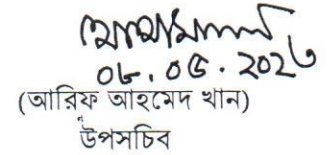 ০৮.০৫.২০২৩
(আরিফ আহমেদ খান)
উপসচিব